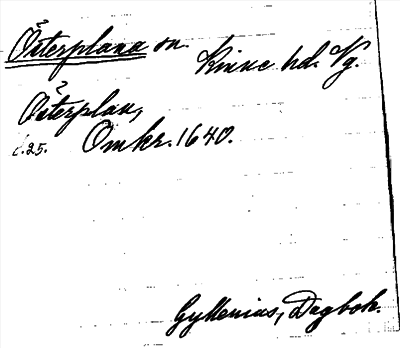 Österplana sn. Kinne hd. Vg.
Österplan,
s. 25. Omkr. 1640.
Gyllenius, Dagbok.